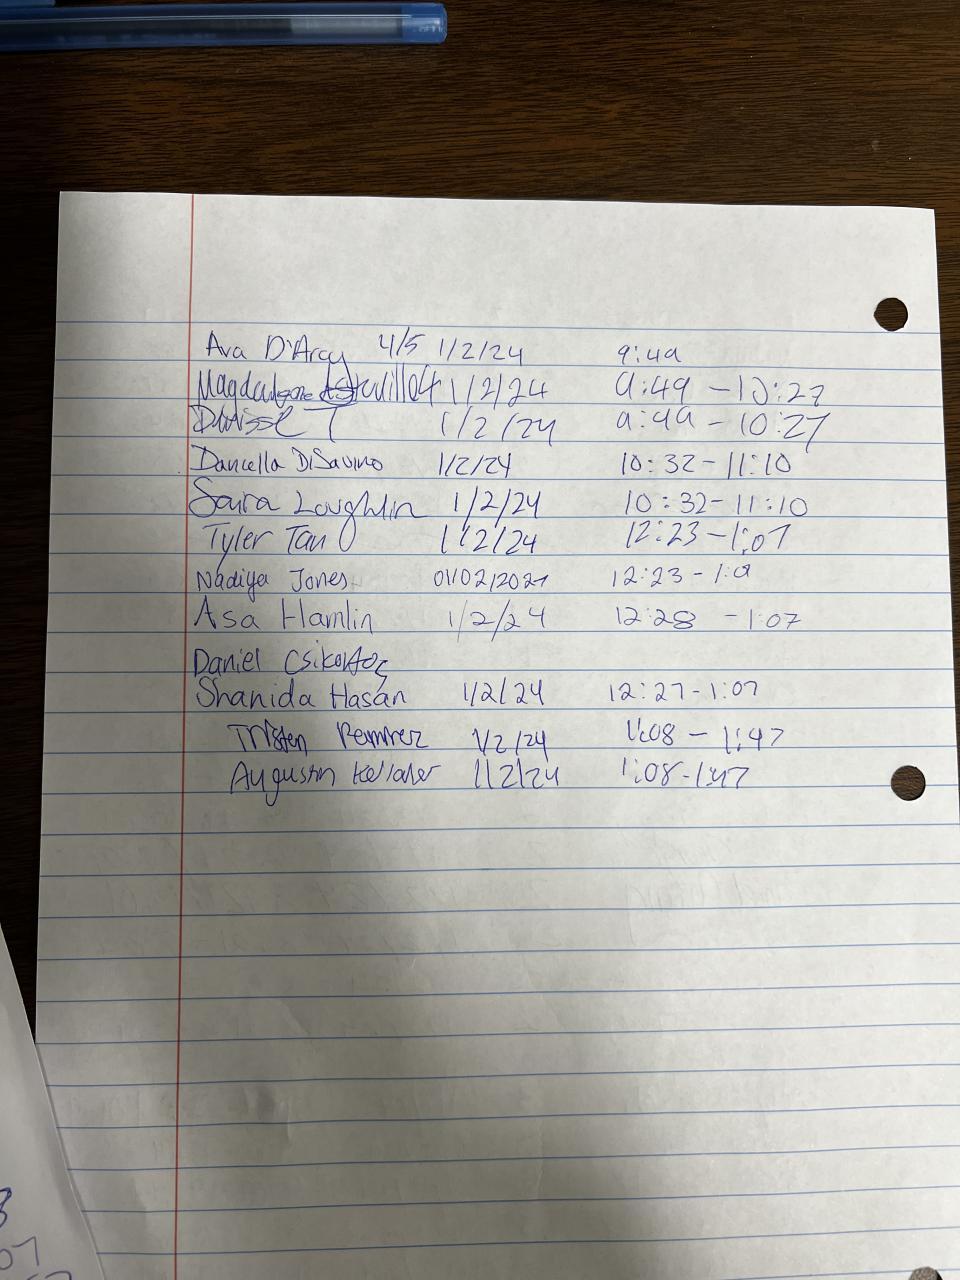 Ava D'Arcy 4/5 1/2/24 9:49
1/2/24 9:49 - 10:27
T 1/2/24 9:49 - 10:27
Daniella DiSavino 1/2/24 10:32-11:10
Saira Loughlin 1/2/24 10:32-11:10
Tyler Tan 1/2/24 12:23-1:07
Nadiya Jones 01/02/2024 12:23 - 1:0
Asa Hamlin 1/2/24 12:28 - 1:07
Daniel
Shanida Hasan 1/2/24 12:27-1:07
Tristen Ramirez 1/2/24 1:08 - 1:47
Augustin 1/2/24 1:08-1:47
07